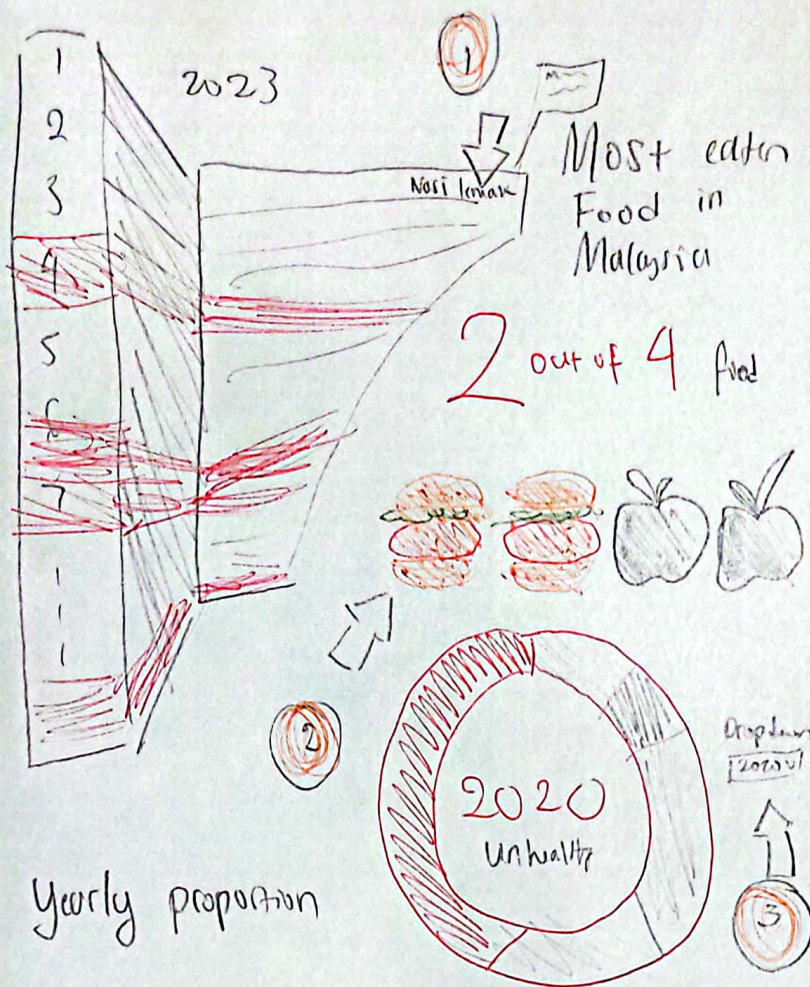 1
2
3
4
5
6
7
2023
1
Nasi lemak
Most eaten
Food in
Malaysia
2 out of 4 food
2
2020
Unhealthy
Dropdown
2020 v
3
Yearly proportion